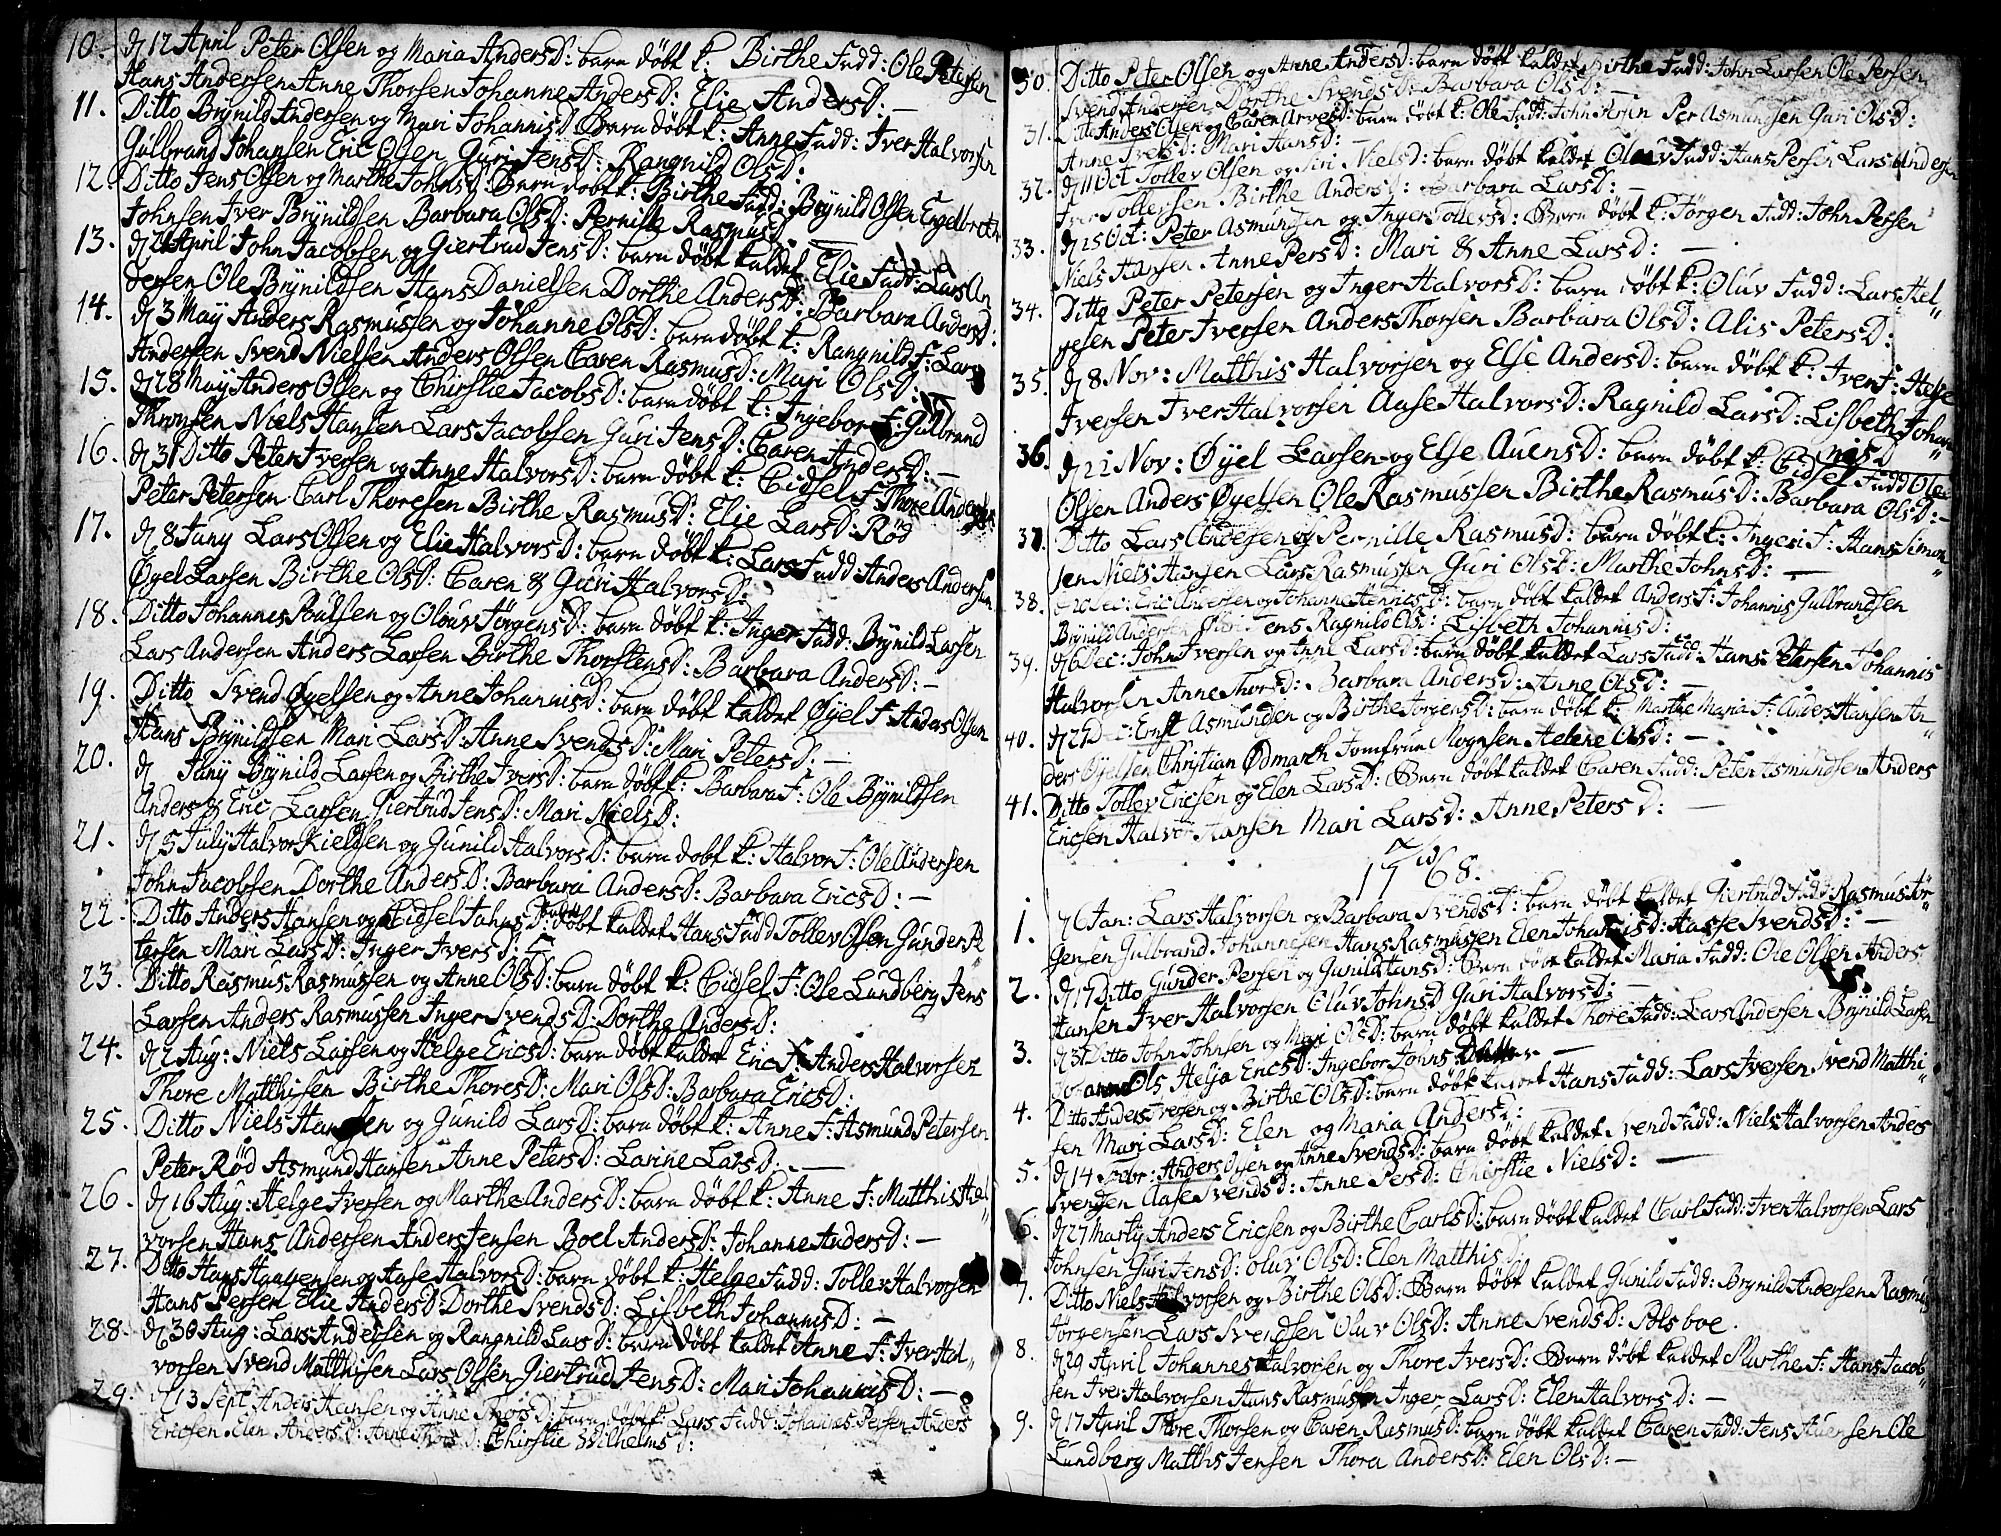 10. d 12 April Peter Olsen og Maria AndersD: barn döbt k: Birthe Fadd: Ole Petersen
Hans Andersen Anne Thorsen Johanne AndersD: Elie AndersD: —
11. Ditto Brÿnild Andersen og Mari JohannisD Barn döbt k: Anne Fadd: Iver Halvorsen
Gulbrand Johansen Eric Olsen Guri JensD: Rangnild OlsD:
12. Ditto Jens Olsen og Marthe JohnsD: Barn döbt k: Birthe Fadd: Brÿnild Olsen Engelbreth
Johnsen Iver Brÿnildsen Barbara OlsD: Pernille RasmusD
13. d 21 April John Jacobsen og Giertrud JensD: barn döbt kaldet Elie Fadd: Lars An
dersen Ole Brÿnildsen Hans Danielsen Dorthe AndersD: Barbara AndersD:
14. d 3 Maÿ Anders Rasmussen og Johanne OlsD: barn döbt k: Rangnild F: Lars
Andersen Svend Nielsen Anders Olsen Caren RasmusD: Mari OlsD: —
15. d 28 Maÿ Anders Olsen og Chirstie JacobsD: barn döbt k: Ingebor F: Gulbrand
Thronsen Niels Hansen Lars Jacobsen Guri JensD: Caren AndersD: —
16. d 31 Ditto Peter Iversen og Anne HalvorsD: barn döbt k: Cidsel F: Thore Andersen
Peter Petersen Carl Thoresen Birthe RasmusD: Elie LarsD: Röd
17. d 8 Junÿ Lars Olsen og Elie HalvorsD: barn döbt k: Lars Fadd Anders Andersen
Øÿel Larsen Birthe OlsD: Caren & Guri HalvorsD:
18. Ditto Johannes Poulsen og Olouv JörgensD: barn döbt k: Inger Fadd: Brÿnild Larsen
Lars Andersen Anders Larsen Birthe ThorstensD: Barbara AndersD: —
19. Ditto Svend Øÿelsen og Anne JohannisD: barn döbt kaldet Øÿel F: Anders Olsen
Hans Brÿnildsen Mari LarsD: Anne SvendsD: Mari PetersD: —
20. d Junÿ Brÿnild Larsen og Birthe IversD: barn döbt k: Barbara F: Ole Brÿnildsen
Anders & Eric Larsen Giertrud JensD: Mari NielsD:
21. d 5 Julÿ Halvor Kieldsen og Gunild HalvorsD: barn döbt k: Halvor F: Ole Andersen
John Jacobsen Dorthe AndersD: Barbara AndersD: Barbara EricsD: —
22. Ditto Anders Hansen og Cidsel JahnsD: döbt kaldet Hans Fadd Tollev Olsen Gunder Pe
tersen Mari LarsD: Inger IversD:
23. Ditto Rasmus Rasmussen og Anne OlsD: barn döbt k: Cidsel F: Ole Lundberg Jens
Larsen Anders Rasmussen Inger SvendsD: Dorthe AndersD:
24. d 2 Aug: Niels Larsen og Helge EricsD: barn döbt kaldet Eric F: Anders Halvorsen
Thore Matthisen Birthe ThoresD: Mari OlsD: Barbara EricsD:
25. Ditto Niels Hansen og Gunild LarsD: barn döbt k: Anne F: Asmund Petersen
Peter Röd Asmund Hansen Anne PetersD: Larine LarsD: —
26. d 16 Aug: Helge Iversen og Marthe AndersD: barn döbt k: Anne F: Matthis Hal
vorsen Hans Andersen Anders Jensen Boel AndersD: Johanne AndersD: —
27. Ditto Hans Haagensen og Aase HalvorsD: barn döbt k: Helge Fadd: Tollev Halvorsen
Hans Persen Elie AndersD: Dorthe SvendsD: Lisbeth JohannisD: —
28. d 30 Aug: Lars Andersen og Rangnild LarsD: barn döbt kaldet Anne F: Iver Hal
vorsen Svend Matthisen Lars Olsen Giertrud JensD: Mari JohannisD: —
29. d 13 Sept Anders Hansen og Anne ThorsD: barn döbt k: Lars Fadd: Johannes Persen Anders
Ericsen Elen AndersD: Anne ThorsD: Chirstie WilhelmsD:
30. Ditto Peter Olsen og Anne AndersD: barn döbt kaldet Birthe Fadd: John Larsen Ole Persen
Svend Andersen Dorthe SvendsD: Barbara OlsD: —
31. Ditto Anders Olsen og Caren ArvesD: barn döbt k: Ole Fadd: John Persen Per Asmundsen Guri OlsD:
Anne IversD: Mari HansD: —
32. d 11 Oct Tollev Olsen og Siri NielsD: barn döbt kaldet Oluv Fadd: Hans Persen Lars Andersen
Iver Tollefsen Birthe AndersD: Barbara LarsD: —
33. d 25 Oct: Peter Asmundsen og Inger TollevsD: Barn döbt k: Jörgen Fadd: John Persen
Niels Hansen Anne PersD: Mari & Anne LarsD: —
34. Ditto Peter Petersen og Inger HalvorsD: barn döbt k: Oluv Fadd: Lars Hel
gesen Peter Iversen Anders Thorsen Barbara OlsD: Alis PetersD:
35. d 8 Nov: Matthis Halvorsen og Else AndersD: barn döbt k: Iver F: Helge
Iversen Iver Halvorsen Aase HalvorsD: Ragnild LarsD: Lisbeth Johan
nisD
36. d 22 Nov: Øÿel Larsen og Else AuensD: barn döbt k: Cidsel Fadd Ole
Olsen Anders Øÿelsen Ole Rasmussen Birthe RasmusD: Barbara OlsD: —
37. Ditto Lars Andersen og Pernille RasmusD: barn döbt k: Ingeri F: Hans Simon
sen Niels Hansen Lars Rasmussen Guri OlsD: Marthe JohnsD: —
38. Dec: Eric Andersen og Johanne HenricsD: barn döbt kaldet Anders F: Johannis Gulbrandsen
Brÿnild Andersen JensD Ragnild OlsD: Lisbeth JohannisD:
39. d 6 Dec: John Iversen og Anne LarsD: barn döbt kaldet Lars Fadd: Hans Petersen Johannis
Halvorsen Anne ThorsD: Barbara AndersD: Anne OlsD: —
40. d 27 D: Ernst Asmundsen og Birthe JörgensD: barn döbt k: Marthe Maria F: Anders Hansen An
ders Øÿelsen Christian Ødmarch Jomfrue Mognsen Helene OlsD: —
41. Ditto Tollev Ericsen og Elen LarsD: Barn döbt kaldet Caren Fadd: Peter Asmundsen Anders
Ericsen Halvor Hansen Mari LarsD: Anne PetersD: —
1768.
1. d 6 Jan: Lars Halvorsen og Barbara SvendsD: barn döbt kaldet Giertrud Fadd: Rasmus Jör
gensen Gulbrand Johannesen Hans Rasmussen Elen JohannisD: Aasse SvendsD: —
2. d 17 Ditto Gunder Persen og Gunild HansD: Barn döbt kaldet Maria Fadd: Ole Olsen Anders
Hansen Iver Halvorsen Oluv JohnsD Guri HalvorsD: —
3. d 31 Ditto John Johnsen og Mari OlsD: barn döbt kaldet Thore Fadd: Lars Andersen Brÿnild Larsen
Johanne Ols Helja EricsD: Ingebor Johns Datter —
4. Ditto Anders Iversen og Birthe OlsD: barn döbt kaldet Hans Fadd: Lars Iversen Svend Matthi
sen Mari LarsD: Elen og Maria AndersD:
5. d 14 Febr: Anders Oÿen og Anne SvendsD: barn döbt kaldet Svend Fadd: Niels Halvorsen Anders
Svendsen Aase SvendsD: Anne PersD: Chirstie NielsD: —
6. d 27 Martÿ Anders Ericsen og Birthe CarlsD: barn döbt kaldet Carl Fadd: Iver Halvorsen Lars
Johnsen Guri JensD: Oluv OlsD: Elen MatthisD:
7. Ditto Niels Halvorsen og Birthe OlsD: Barn döbt kaldet Gunild Fadd: Brÿnild Andersen Rasmus
Jörgensen Lars Svendsen Oluv OlsD: Anne SvendsD: Pölsboe.
8. d 29 April Johannes Halvorsen og Thore IversD: Barn döbt kaldet Marthe F: Hans Jacob
sen Iver Halvorsen Hans Rasmussen Inger LarsD: Elen HalvorsD: —
9. d 17 April Thore Thorsen og Caren RasmusD: barn döbt kaldet Caren Fadd: Jens Auensen Ole
Lundberg Matths Jensen Thora AndersD: Elen OlsD: —